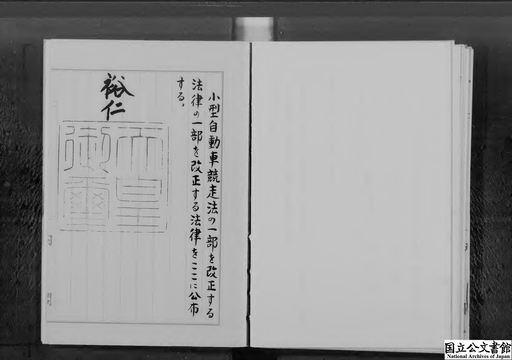 小型自動車競走法の一部を改正する
法律の一部を改正する法律をここに公布
する。
裕仁
天皇
御璽
国立公文書館
National Archives of Japan